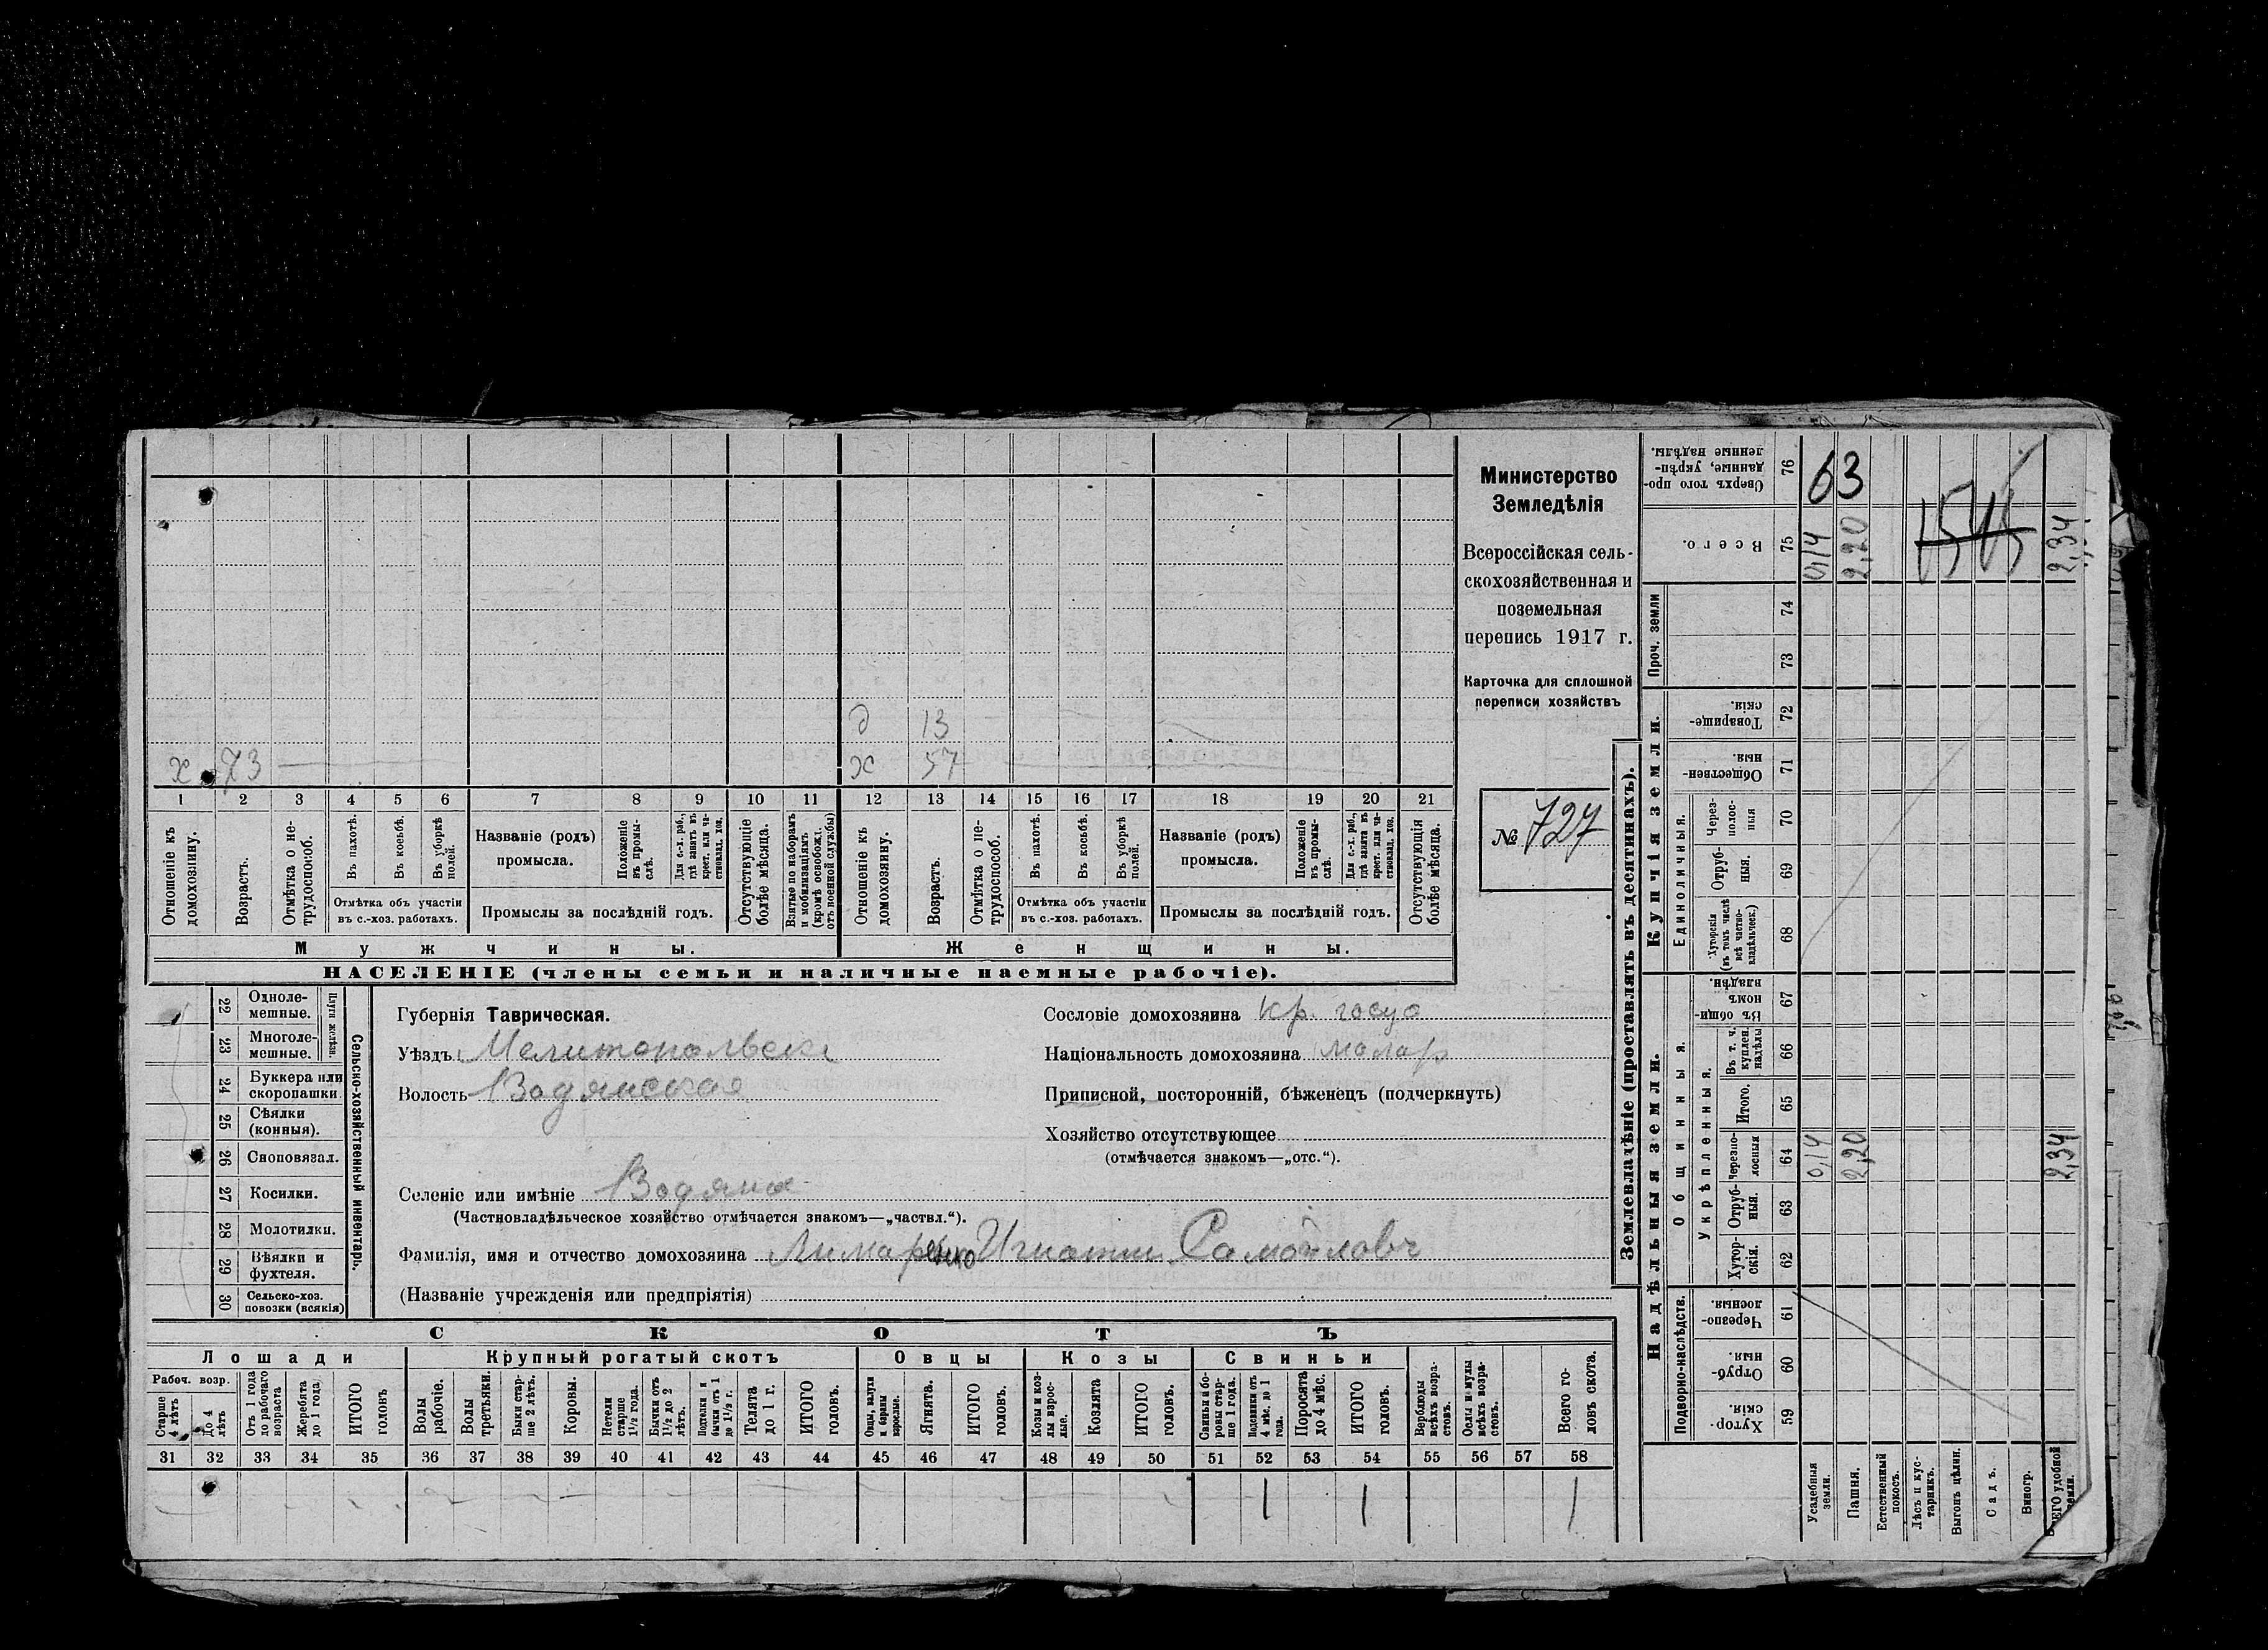 д 13
х 73 х 57
1 2 3 4 5 6 7 8 9 10 11 12 13 14 15 16 17 18 19 20 21
Отношеніе къ домохозяину.
Возрастъ.
Отмѣтка о не-
трудоспособ.
Въ пахотѣ.
Въ косьбѣ.
Въ уборкѣ полей.
Отмѣтка объ участіи
въ с.-хоз. работахъ.
Названіе (родъ)
промысла.
Положеніе
въ промы-
слѣ.
Для с.-х. раб.,
гдѣ занятъ въ
крест. или ча-
стновлад. хоз.
Промыслы за послѣдній годъ.
Отсутствующіе
болѣе мѣсяца.
Взятые по наборамъ
и мобилизаціямъ
(кромѣ освобожд.
отъ военной службы)
Отношеніе къ
домохозяину.
Возрастъ.
Отмѣтка о не-
трудоспособ.
Въ пахотѣ.
Въ косьбѣ.
Въ уборкѣ
полей.
Отмѣтка объ участіи
въ с.-хоз. работахъ.
Названіе (родъ)
промысла.
Положеніе
въ промы-
слѣ.
Для с.-х. раб.,
гдѣ занята въ
крест. или ча-
стновлад. хоз.
Промыслы за послѣдній годъ.
Отсутствующія
болѣе мѣсяца.
Мужчины. Женщины.
НАСЕЛЕНІЕ (члены семьи и наличные наемные рабочіе).
Министерство
Земледѣлія
Всероссійская сель-
скохозяйственная и
поземельная
перепись 1917 г.
Карточка для сплошной
переписи хозяйствъ
№ 727
22 Одноле-
мешные.
23 Многоле-
мешные.
Плуги желѣзн.
24 Буккера или
скоропашки
25 Сѣялки
(конныя).
26 Сноповязал.
27 Косилки.
28 Молотилки.
29 Вѣялки и
фухтеля.
30 Сельско-хоз.
повозки (всякія)
Сельско-хозяйственный инвентарь.
Губернія Таврическая.
Уѣздъ Мелитопольск
Волость Водянская
Селеніе или имѣніе Водяна
(Частновладѣльческое хозяйство отмѣчается знакомъ—„частвл.“).
Фамилія, имя и отчество домохозяина Лимаренко Игнатій Самойловъ
(Названіе учрежденія или предпріятія)
Сословіе домохозяина кр. госуд
Національность домохозяина малор
Приписной, посторонній, бѣженецъ (подчеркнуть)
Хозяйство отсутствующее
(отмѣчается знакомъ—„отс.“).
СКОТЪ
Лошади Крупный рогатый скотъ Овцы Козы Свиньи
Рабоч. возр.
Старше
4 лѣтъ
До 4
лѣтъ
Отъ 1 года
до рабочаго
возраста
Жеребята
до 1 года
ИТОГО
головъ
Волы
рабочіе.
Волы
третьяки.
Быки стар-
ше 2 лѣтъ.
Коровы.
Нетели
старше
1 1/2 года.
Бычки отъ
1 1/2 до 2
лѣтъ.
Подтелки и
бычки отъ 1
до 1 1/2 г.
Телята
до 1 г.
ИТОГО
головъ.
Овцы, валухи
и бараны
взрослые.
Ягнята.
ИТОГО
головъ.
Козы и коз-
лы взрос-
лые.
Козлята
ИТОГО
головъ.
Свиньи и бо-
ровы стар-
ше 1 года.
Подсвинки отъ
4 мѣс. до 1
года.
Поросята
до 4 мѣс.
ИТОГО
головъ.
Верблюды
всѣхъ возра-
стовъ.
Ослы и мулы
всѣхъ возра-
стовъ.
Всего го-
ловъ скота.
31 32 33 34 35 36 37 38 39 40 41 42 43 44 45 46 47 48 49 50 51 52 53 54 55 56 57 58
1 1 1
Землевладѣніе (проставлять въ десятинахъ).
Сверхъ того про-
данные, укрѣп-
ленные надѣлы.
76
63
Всего.
75
0,14 2,20 2,34
1545
Проч. земли
74
73
Купчія земли.
Товарище-
скія.
72
Обществен-
ныя.
71
Единоличныя.
Через-
полос-
ныя
70
Отруб-
ныя.
69
Хуторскія
(въ томъ числѣ
всѣ частно-
владѣльческ.)
68
Надѣльныя земли.
Общинныя.
Въ общин-
номъ
владѣн.
67
Укрѣпленныя.
Въ т. ч.
куплен.
надѣлы
66
Итого.
65
Черезпо-
лосныя
64
0,14 2,20 2,34
Отруб-
ныя.
63
Хутор-
скія.
62
Подворно-наслѣдств.
Черезпо-
лосныя.
61
Отруб-
ныя.
60
Хутор-
скія.
59
Усадебныя
земли.
Пашня.
Естественный
покосъ.
Лѣсъ и кус-
тарникъ.
Выгонъ цѣлин.
Садъ.
Виногр.
ВСЕГО удобной
земли.